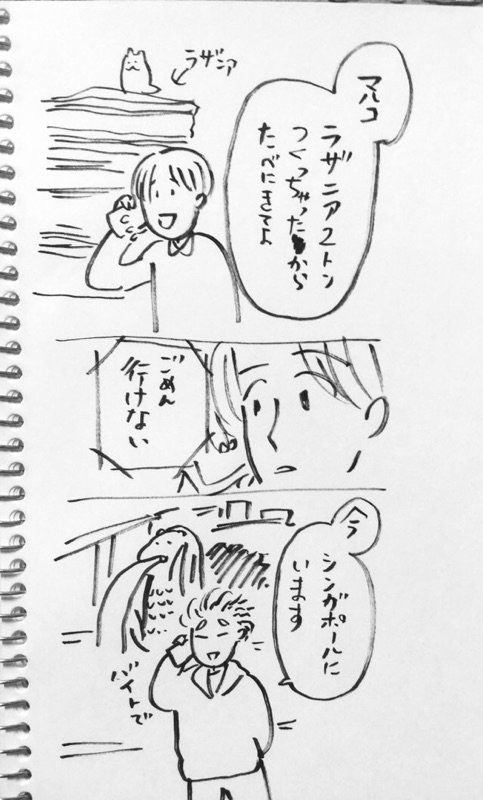 マルコ
ラザニア2トン
つくっちゃったから
たべにきてよ
ラザニア
ごめん
行けない
今
シンガポールに
います
バイトで